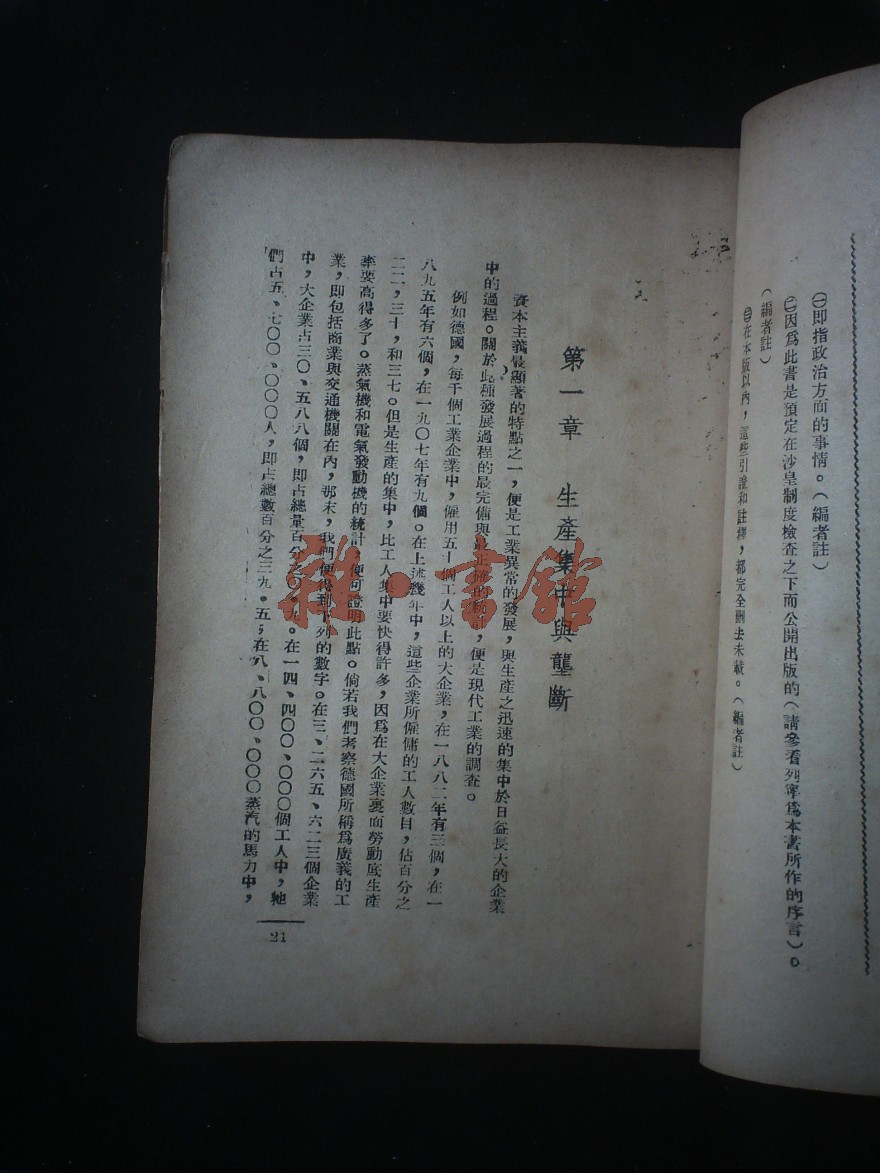 ㊀即指政治方面的事情。(編者註)
㊁因爲此書是預定在沙皇制度檢查之下而公開出版的(請參看列寧爲本書所作的序言)。
(編者註)
㊂在本版以內,這些引證和註釋,都完全刪去未載。(編者註)
第一章 生產集中與壟斷
資本主義最顯著的特點之一,便是工業異常的發展,與生產之迅速的集中於日益長大的企業
中的過程。關於此種發展過程的最完備與最正確的統計,便是現代工業的調查。
例如德國,每千個工業企業中,僱用五十個工人以上的大企業,在一八八二年有三個,在一
八九五年有六個,在一九〇七年有九個。在上述幾年中,這些企業所僱傭的工人數目,佔百分之
二二,三十,和三七。但是生產的集中,比工人集中要快得許多,因爲在大企業裏面勞動底生產
率要高得多了。蒸氣機和電氣發動機的統計,便可證明此點。倘若我們考察德國所稱爲廣義的工
業,即包括商業與交通機關在內,那末,我們便得到下列的數字。在三、二六五、六二三個企業
中,大企業占三〇、五八八個,即占總量百分之〇、九。在一四、四〇〇、〇〇〇個工人中,牠
們占五、七〇〇、〇〇〇人,即占總數百分之三九。五;在八、八〇〇、〇〇〇蒸汽的馬力中,
21
雜·書館